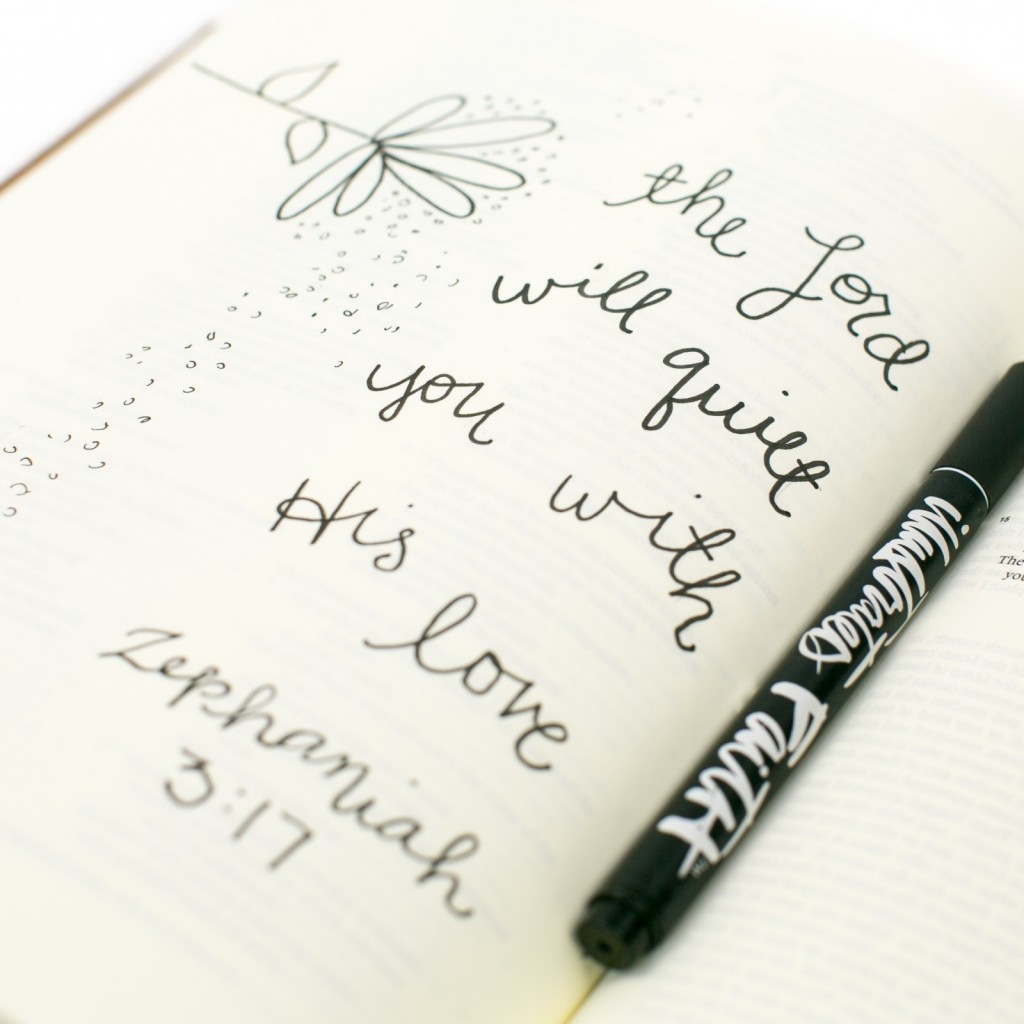 the Lord
will quiet
you with
His love
Zephaniah
3:17
illustrated Faith
™
15
The
you